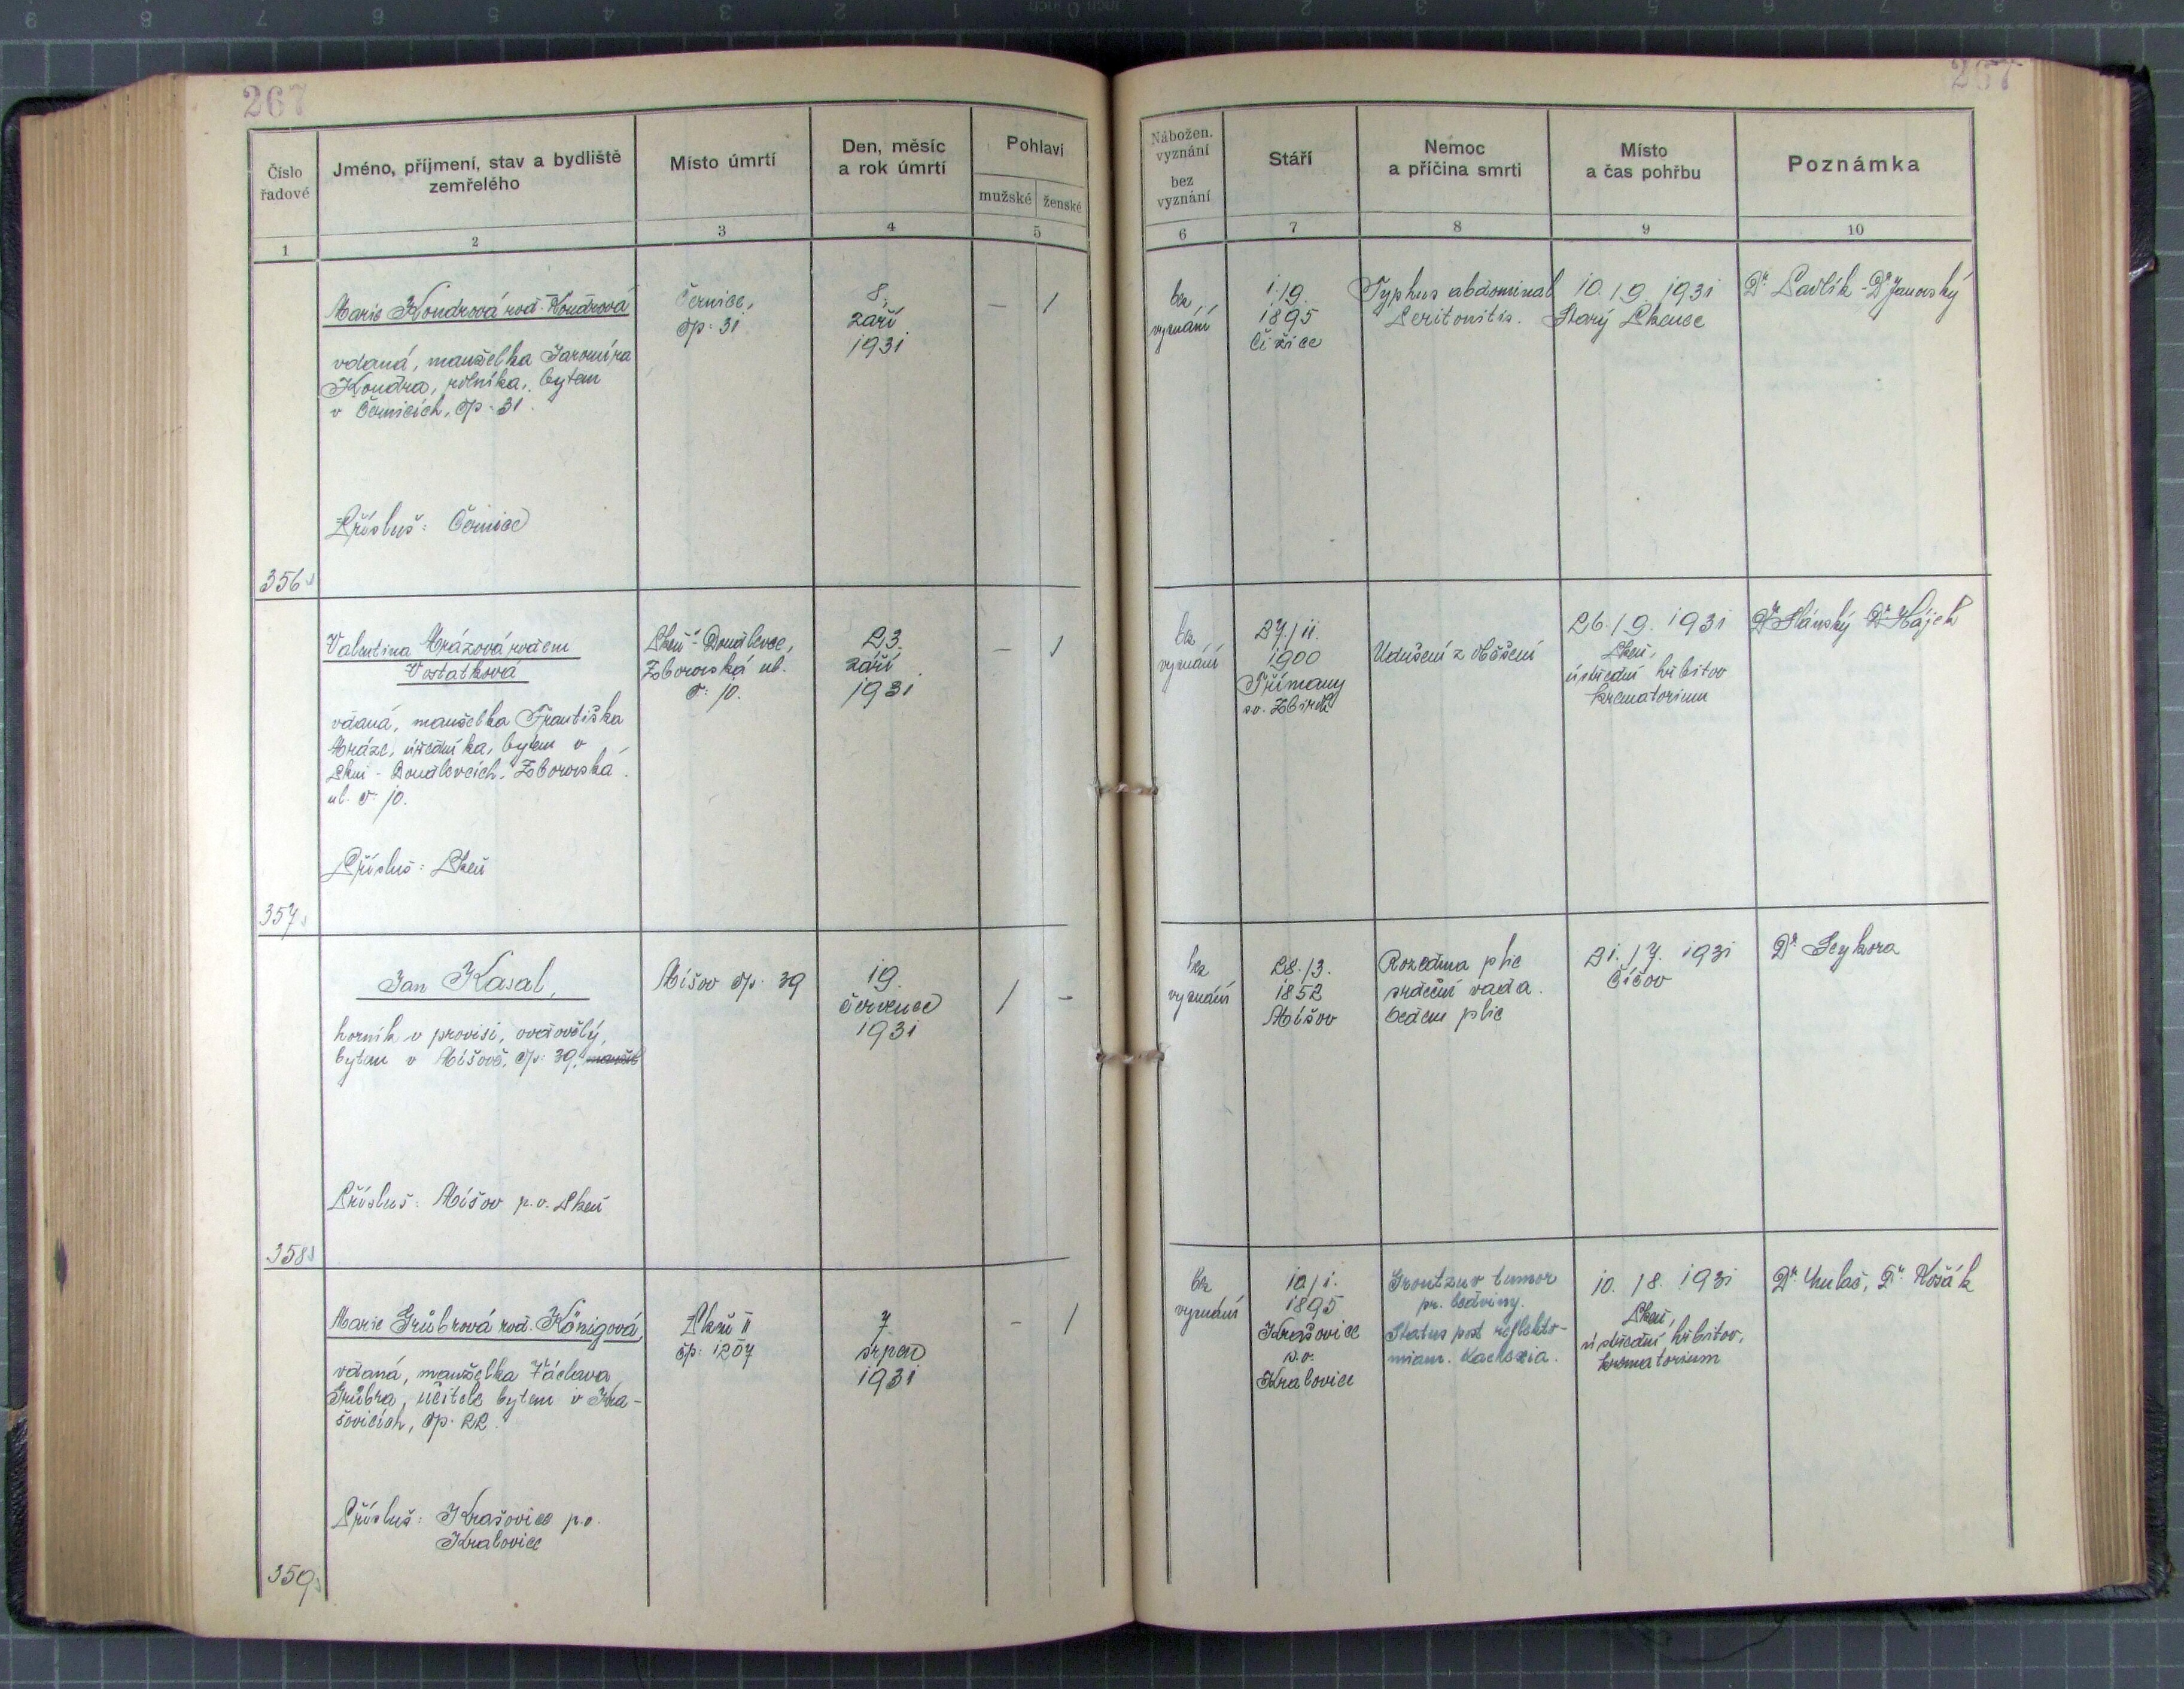 267
267
Číslo řadové
Jméno, příjmení, stav a bydliště zemřelého
Místo úmrtí
Den, měsíc a rok úmrtí
Pohlaví
mužské ženské
Nábožen. vyznání
bez vyznání
Stáří
Nemoc a příčina smrti
Místo a čas pohřbu
Poznámka
1 2 3 4 5 6 7 8 9 10
356
Marie Kondrová roz. Kondrová
vdaná, manželka Jaromíra
Kondra, rolníka, bytem
v Černicích, čp. 31.
Přísluš: Černice
Černice,
čp. 31
8.
září
1931
— 1
bez
vyznání
1./9.
1895
Čižice
Typhus abdominal
Peritonitis.
10./9. 1931
Starý Plzenec
Dr. Pavlík - Dr Janovský
357
Valentina Mrázová rodem
Vostatková
vdaná, manželka Františka
Mráze, úředníka, bytem v
Plzni - Doudlevcích, Zborovská
ul. č. 10.
Přísluš: Plzeň
Plzeň - Doudlevce,
Zborovská ul.
č. 10.
23.
září
1931
— 1
bez
vyznání
27./11.
1900
Třímany
s.o. Zbiroh
Udušení z oběšení
26./9. 1931
Plzeň,
ústřední hřbitov
krematorium
Dr Slánský Dr Hájek
358
Jan Kasal,
horník v provisi, ovdovělý,
bytem v Míšově, čp. 39,
Přísluš: Míšov p.o. Plzeň
Míšov čp. 39
19.
července
1931
1 —
bez
vyznání
28./3.
1852
Míšov
Rozedma plic
srdeční vada.
Oedem plic
21./7. 1931
Číčov
Dr. Seykora
359
Marie Grübrová roz. Königová
vdaná, manželka Václava
Grübra, učitele bytem v Kra-
šovicích, čp. 22.
Přísluš: Krašovice p.o.
Kralovice
Plzeň II
čp. 1207
7.
srpen
1931
— 1
bez
vyznání
10/1.
1895
Krašovice
s.o.
Kralovice
Grawitzův tumor
pr. ledviny.
Status post
Kachexia.
10./8. 1931
Plzeň,
ústřední hřbitov,
krematorium